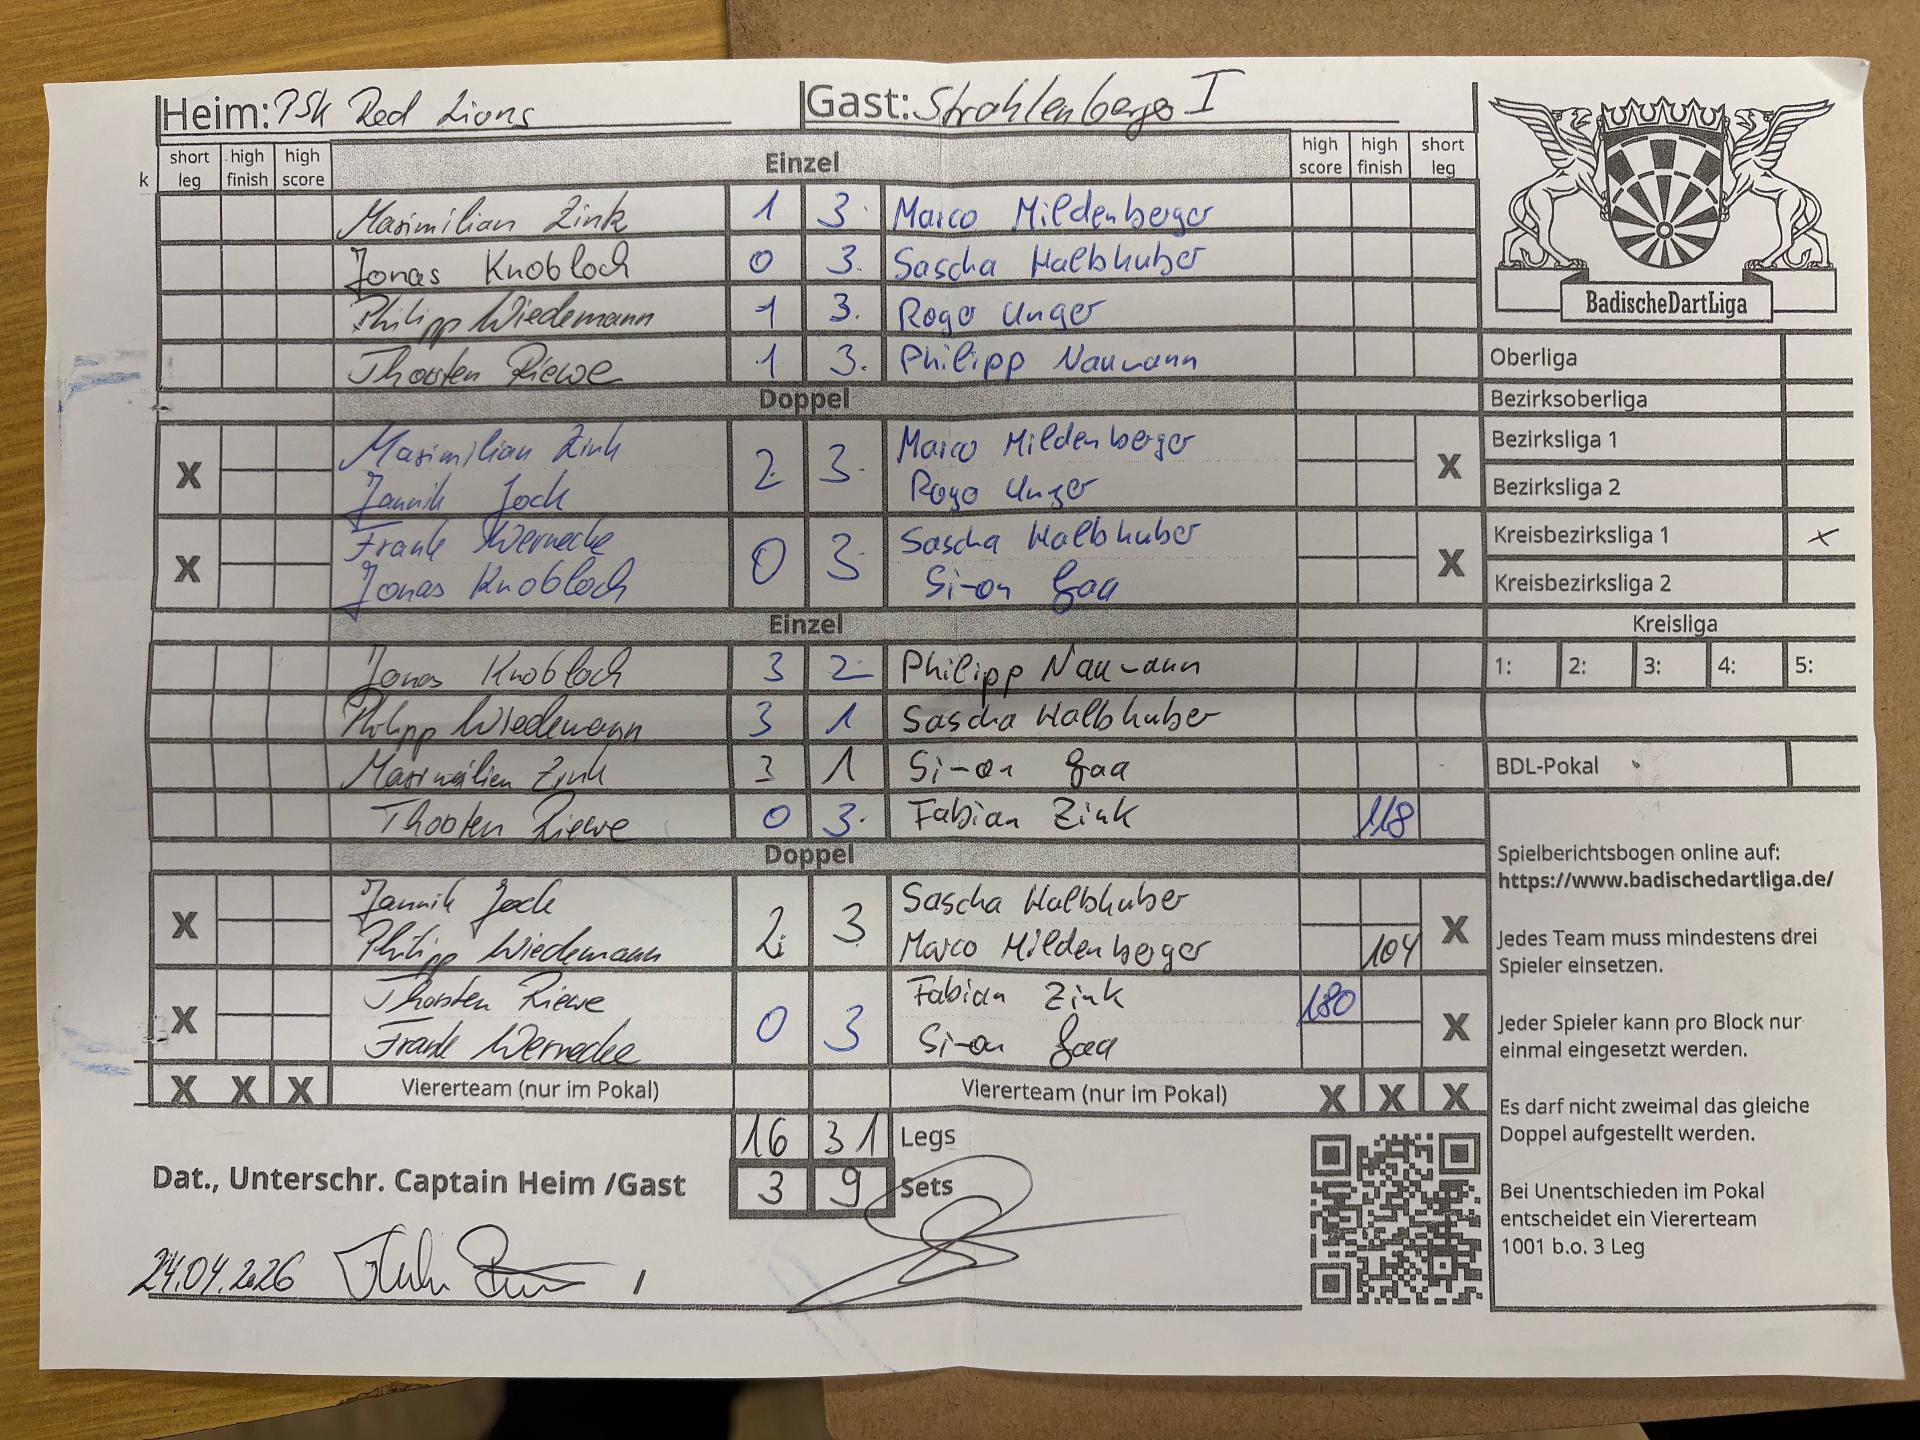 Heim: PSK Red Lions Gast: Strahlenberger I
k short leg high finish high score Einzel high score high finish short leg
Maximilian Zink 1 3. Marco Mildenberger
Jonas Knobloch 0 3. Sascha Halbhuber
Philipp Wiedemann 1 3. Roger Unger
Thorsten Riewe 1 3. Philipp Naumann
Doppel
X Maximilian Zink 2 3. Marco Mildenberger X
Jannik Jock Roger Unger
X Frank Wernecke 0 3. Sascha Halbhuber X
Jonas Knobloch Simon Gaa
Einzel
Jonas Knobloch 3 2 Philipp Naumann
Philipp Wiedemann 3 1 Sascha Halbhuber
Maximilien Zink 3 1 Simon Gaa
Thorsten Riewe 0 3. Fabian Zink 118
Doppel
X Jannik Jock 2 3 Sascha Halbhuber X
Philipp Wiedemann Marco Mildenberger 104
X Thorsten Riewe 0 3 Fabian Zink 180 X
Frank Wernecke Simon Gaa
X X X Viererteam (nur im Pokal) Viererteam (nur im Pokal) X X X
16 31 Legs
Dat., Unterschr. Captain Heim /Gast 3 9 Sets
24.04.2026
BadischeDartLiga
Oberliga
Bezirksoberliga
Bezirksliga 1
Bezirksliga 2
Kreisbezirksliga 1 x
Kreisbezirksliga 2
Kreisliga
1: 2: 3: 4: 5:
BDL-Pokal
Spielberichtsbogen online auf:
https://www.badischedartliga.de/
Jedes Team muss mindestens drei
Spieler einsetzen.
Jeder Spieler kann pro Block nur
einmal eingesetzt werden.
Es darf nicht zweimal das gleiche
Doppel aufgestellt werden.
Bei Unentschieden im Pokal
entscheidet ein Viererteam
1001 b.o. 3 Leg